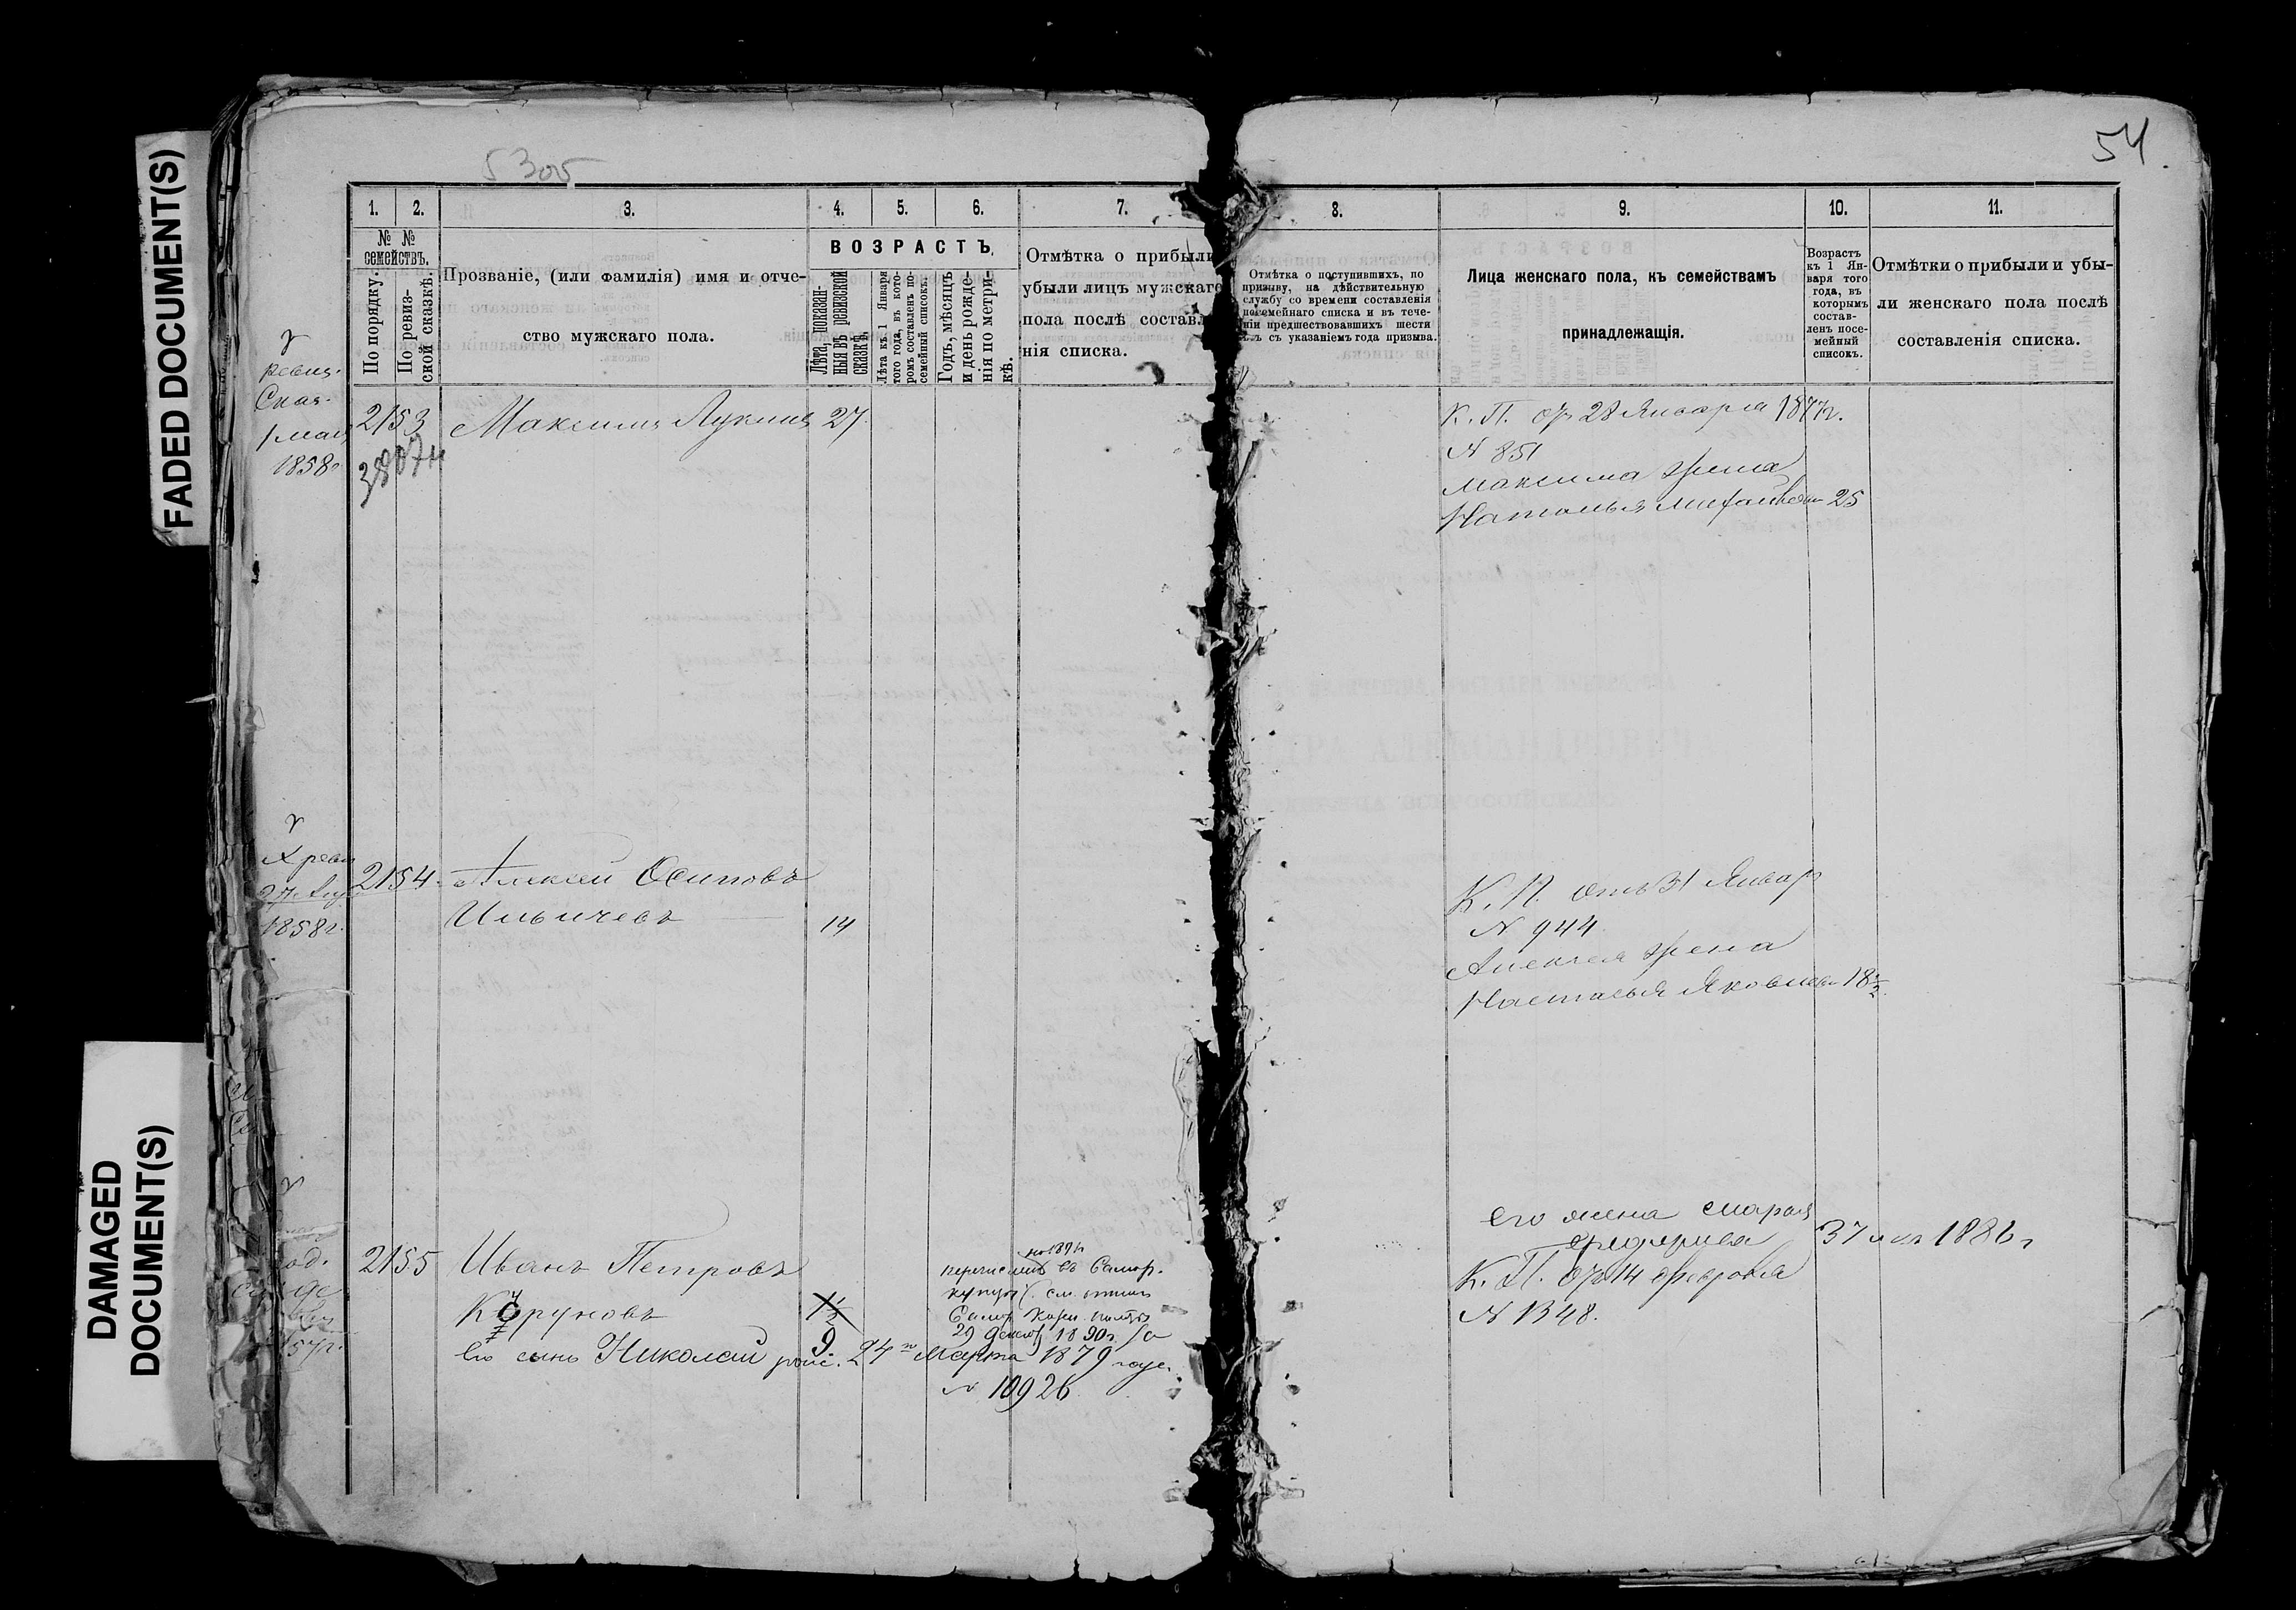 FADED DOCUMENT(S)
DAMAGED
DOCUMENT(S)
54
5305
1.
2.
3.
4.
5.
6.
7.
8.
9.
10.
11.
№ №
семействъ.
По порядку.
По ревиз-
ской сказкѣ.
Прозваніе, (или фамилія) имя и отче-
ство мужскаго пола.
ВОЗРАСТЪ.
Лѣта, показан-
ныя въ ревизской
сказкѣ.
Лѣта къ 1 Января
того года, въ кото-
ромъ составленъ по-
семейный списокъ.
Годъ, мѣсяцъ
и день рожде-
нія по метри-
кѣ.
Отмѣтка о прибыли
убыли лицъ мужскаго
пола послѣ составл
нія списка.
Отмѣтка о поступившихъ, по
призыву, на дѣйствительную
службу со времени составленія
посемейнаго списка и въ тече-
ніи предшествовавшихъ шести
лѣтъ съ указаніемъ года призыва.
Лица женскаго пола, къ семействамъ
принадлежащія.
Возрастъ
къ 1 Ян-
варя того
года, въ
которымъ
состав-
ленъ посе-
мейный
списокъ.
Отмѣтки о прибыли и убы-
ли женскаго пола послѣ
составленія списка.
ревиз.
Сказ.
1 мая
1858г
2153
Максимъ Лукинъ 27
К. П. отъ 28 Января 1877г.
№ 851
Максима жена
Наталья Михайлова 25
X реви
1858г.
2154
Алексей Осиповъ
Ильичевъ 14
К. П. отъ 31 Январ
№ 944
Алексея жена
Настасья Яковлева 18½
57г.
2155
Иванъ Петровъ
Коруновъ 1½
9
его сынъ Николай род. 24го Марта 1879 года.
перечисленъ въ Самар.
29 Декаб 1890г. за
№ 10926
его жена
37 1886г
К. П. отъ 14 февраля
№ 1348.